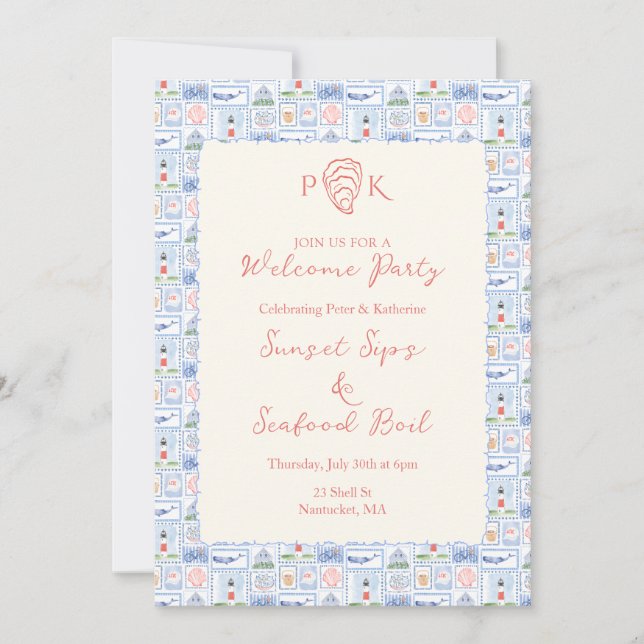 P K
JOIN US FOR A
Welcome Party
Celebrating Peter & Katherine
Sunset Sips
&
Seafood Boil
Thursday, July 30th at 6pm
23 Shell St
Nantucket, MA